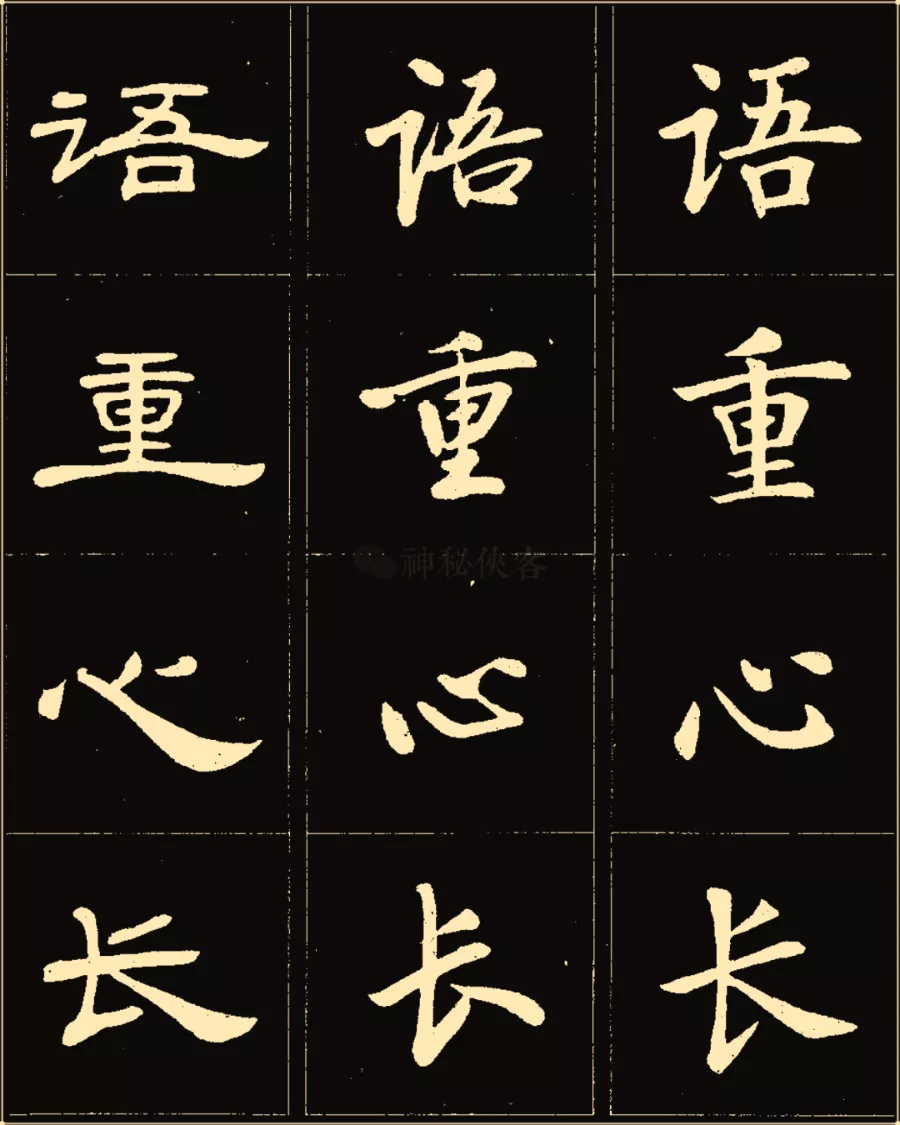 语 语 语
重 重 重
心 心 心
长 长 长
神秘侠客